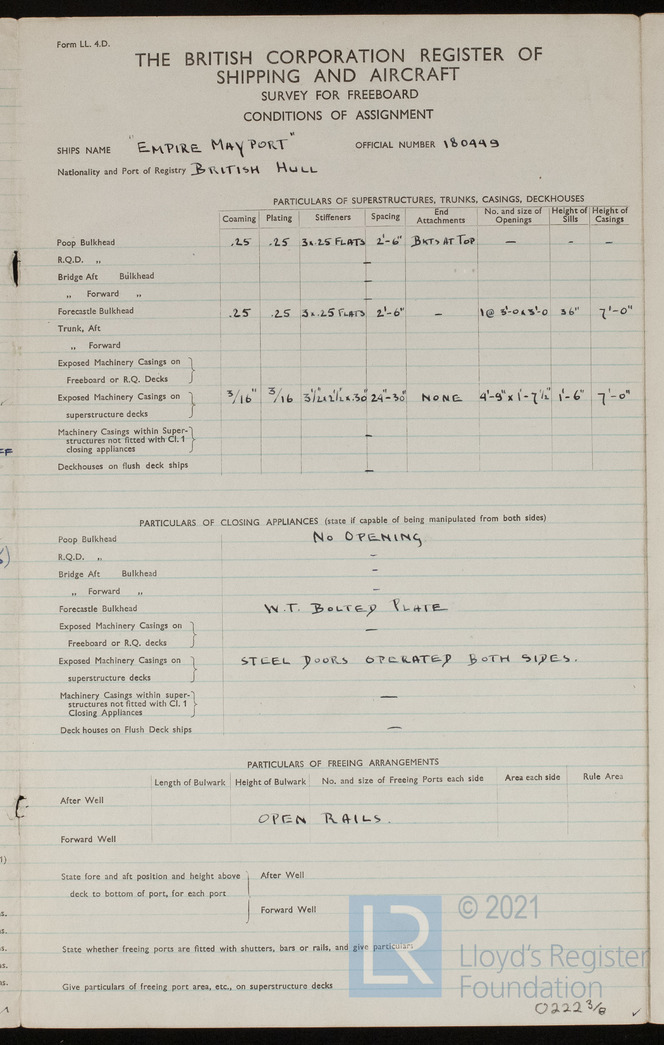 Form LL. 4.D.
THE BRITISH CORPORATION REGISTER OF
SHIPPING AND AIRCRAFT
SURVEY FOR FREEBOARD
CONDITIONS OF ASSIGNMENT
SHIPS NAME "EMPIRE MAYPORT" OFFICIAL NUMBER 180449
Nationality and Port of Registry BRITISH HULL
PARTICULARS OF SUPERSTRUCTURES, TRUNKS, CASINGS, DECKHOUSES
Coaming Plating Stiffeners Spacing End Attachments No. and size of Openings Height of Sills Height of Casings
Poop Bulkhead .25 .25 3x.25 FLATS 2'-6" BKTS AT TOP — - —
R.Q.D. „ —
Bridge Aft Bulkhead —
„ Forward „ —
Forecastle Bulkhead .25 .25 3x.25 FLATS 2'-6" - 1@ 3'-0x3'-0 36" 7'-0"
Trunk, Aft
„ Forward
Exposed Machinery Casings on
Freeboard or R.Q. Decks
Exposed Machinery Casings on 3/16" 3/16 3½x2½x.30 24"-30" NONE 4'-9" x 1'-7½" 1'-6" 7'-0"
superstructure decks
Machinery Casings within Super-
structures not fitted with Cl. 1 —
closing appliances
Deckhouses on flush deck ships —
PARTICULARS OF CLOSING APPLIANCES (state if capable of being manipulated from both sides)
Poop Bulkhead NO OPENING
R.Q.D. „ -
Bridge Aft Bulkhead -
„ Forward „ -
Forecastle Bulkhead W.T. BOLTED PLATE
Exposed Machinery Casings on —
Freeboard or R.Q. decks
Exposed Machinery Casings on STEEL DOORS OPERATED BOTH SIDES.
superstructure decks
Machinery Casings within super-
structures not fitted with Cl. 1 —
Closing Appliances
Deck houses on Flush Deck ships —
PARTICULARS OF FREEING ARRANGEMENTS
Length of Bulwark Height of Bulwark No. and size of Freeing Ports each side Area each side Rule Area
After Well
OPEN RAILS.
Forward Well
State fore and aft position and height above After Well
deck to bottom of port, for each port
Forward Well
State whether freeing ports are fitted with shutters, bars or rails, and give particulars
Give particulars of freeing port area, etc., on superstructure decks
LR
© 2021
Lloyd's Register
Foundation
0222 3/8